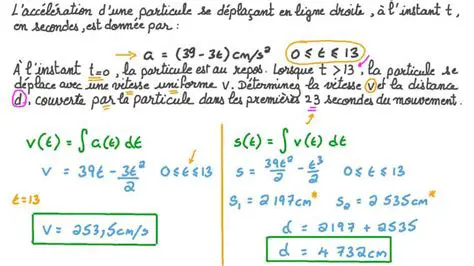 L'accélération d'une particule se déplaçant en ligne droite, à l'instant t,
en secondes, est donnée par :
→ a = (39 - 3t) cm/s² 0 ≤ t ≤ 13
À l'instant t=0, la particule est au repos. Lorsque t > 13, la particule se
déplace avec une vitesse uniforme v. Déterminez la vitesse v et la distance
d, couverte par la particule dans les premières 23 secondes du mouvement.
v(t) = ∫ a(t) dt
v = 39t - 3t²/2 0 ≤ t ≤ 13
t=13
v = 253,5 cm/s
s(t) = ∫ v(t) dt
s = 39t²/2 - t³/2 0 ≤ t ≤ 13
s₁ = 2 197cm* s₂ = 2 535cm*
d = 2197 + 2535
d = 4 732cm